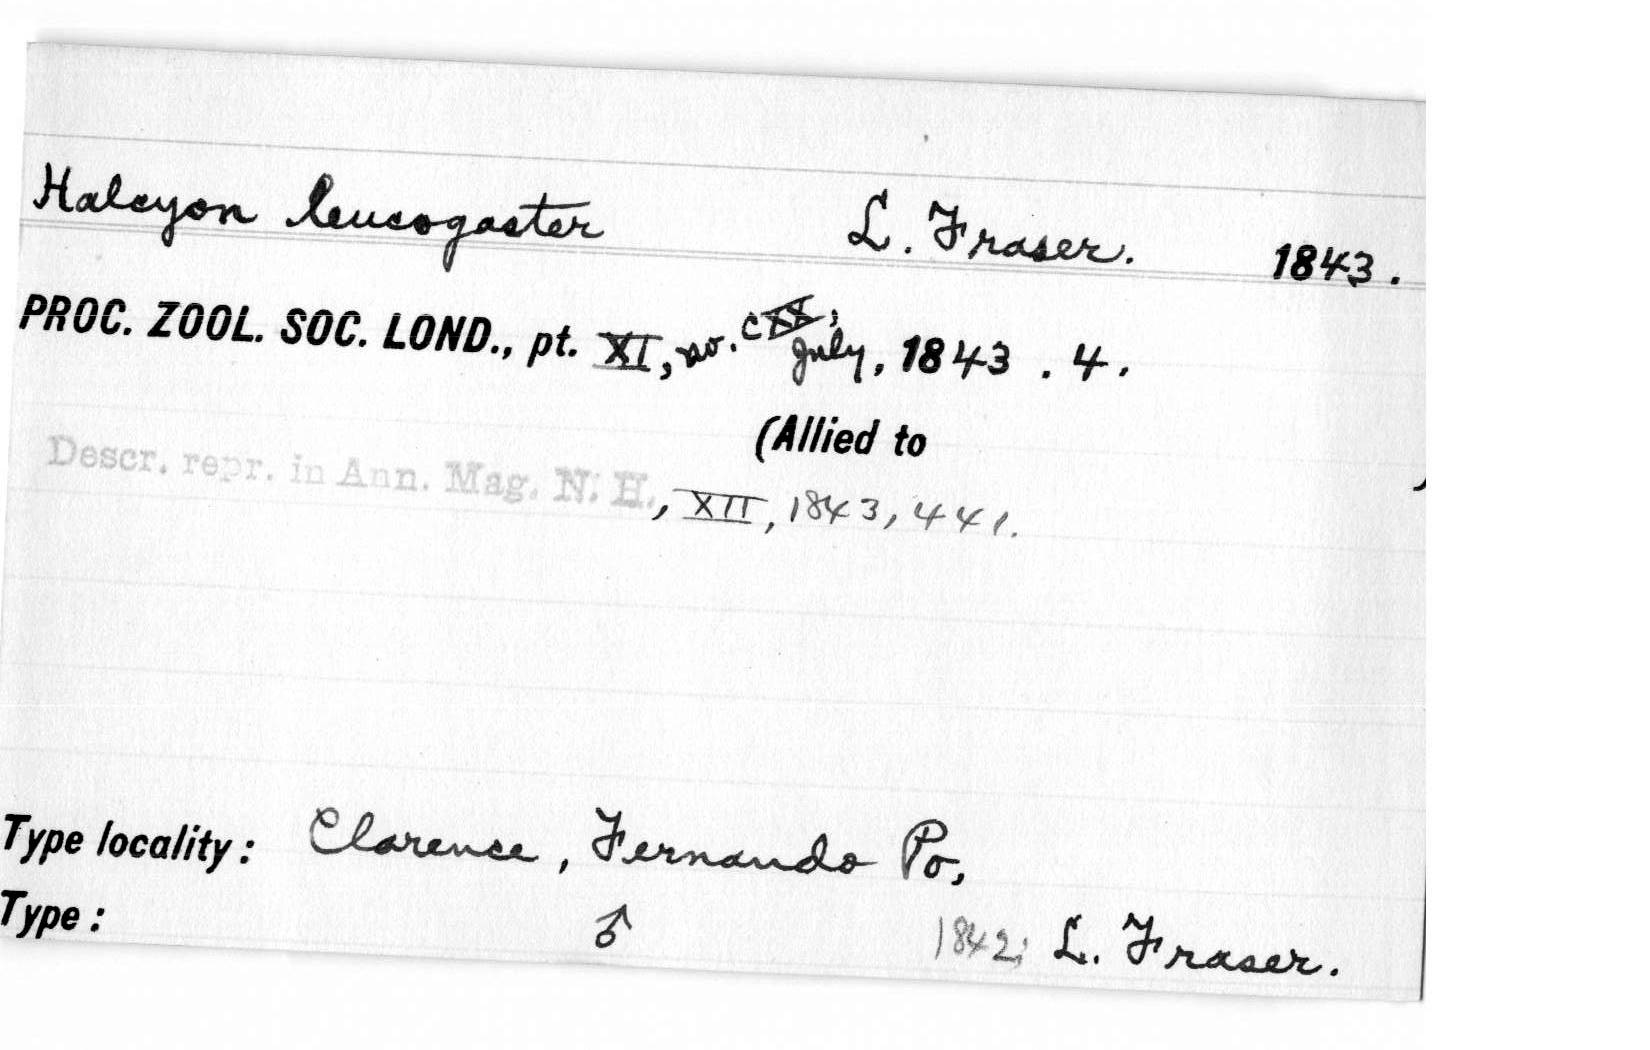 Halcyon leucogaster L. Fraser. 1843.
PROC. ZOOL. SOC. LOND., pt. XI, no. CXX, July, 1843 . 4.
(Allied to ,
Descr. repr. in Ann. Mag. N. H., XII, 1843, 441.
Type locality: Clarence, Fernando Po,
Type: ♂ 1842; L. Fraser.